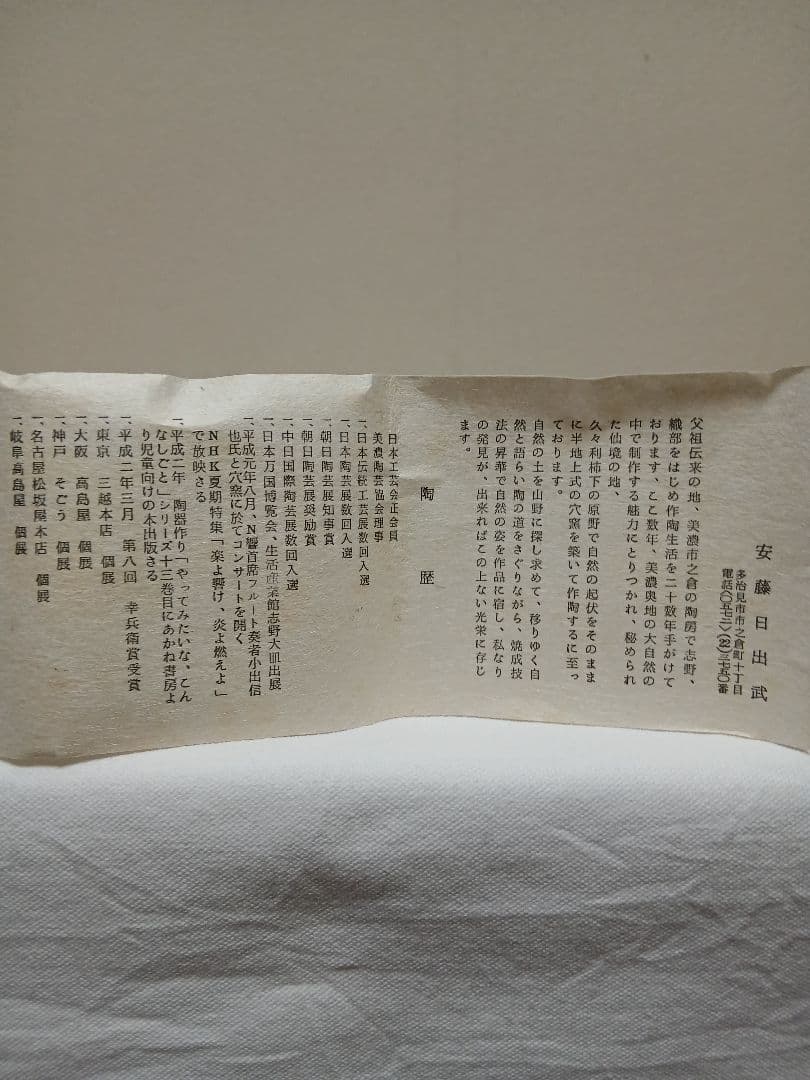 安藤日出武
多治見市市之倉町十丁目
電話(〇五七二)(22)三七五〇番
父祖伝来の地、美濃市之倉の陶房で志野、
織部をはじめ作陶生活を二十数年手がけて
おります、ここ数年、美濃奥地の大自然の
中で制作する魅力にとりつかれ、秘められ
た仙境の地、
久々利柿下の原野で自然の起伏をそのまま
に半地上式の穴窯を築いて作陶するに至っ
ております。
自然の土を山野に探し求めて、移りゆく自
然と語らい陶の道をさぐりながら、焼成技
法の昇華で自然の姿を作品に宿し、私なり
の発見が、出来ればこの上ない光栄に存じ
ます。
陶歴
日本工芸会正会員
美濃陶芸協会理事
一、日本伝統工芸展数回入選
一、日本陶芸展数回入選
一、朝日陶芸展知事賞
一、朝日陶芸展奨励賞
一、中日国際陶芸展数回入選
一、日本万国博覧会、生活産業館志野大皿出展
一、平成元年八月、N響首席フルート奏者小出信
也氏と穴窯に於てコンサートを開く
NHK夏期特集「楽よ響け、炎よ燃えよ」
で放映さる
一、平成二年 陶器作り「やってみたいな、こん
なしごと」シリーズ十三巻目にあかね書房よ
り児童向けの本出版さる
一、平成二年三月 第八回 幸兵衛賞受賞
一、東京 三越本店 個展
一、大阪 高島屋 個展
一、神戸 そごう 個展
一、名古屋松坂屋本店 個展
一、岐阜高島屋 個展